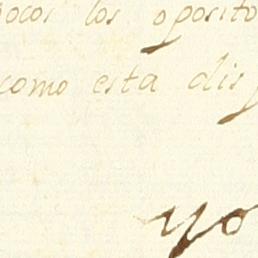 pocos los oposito
como esta dis
yo